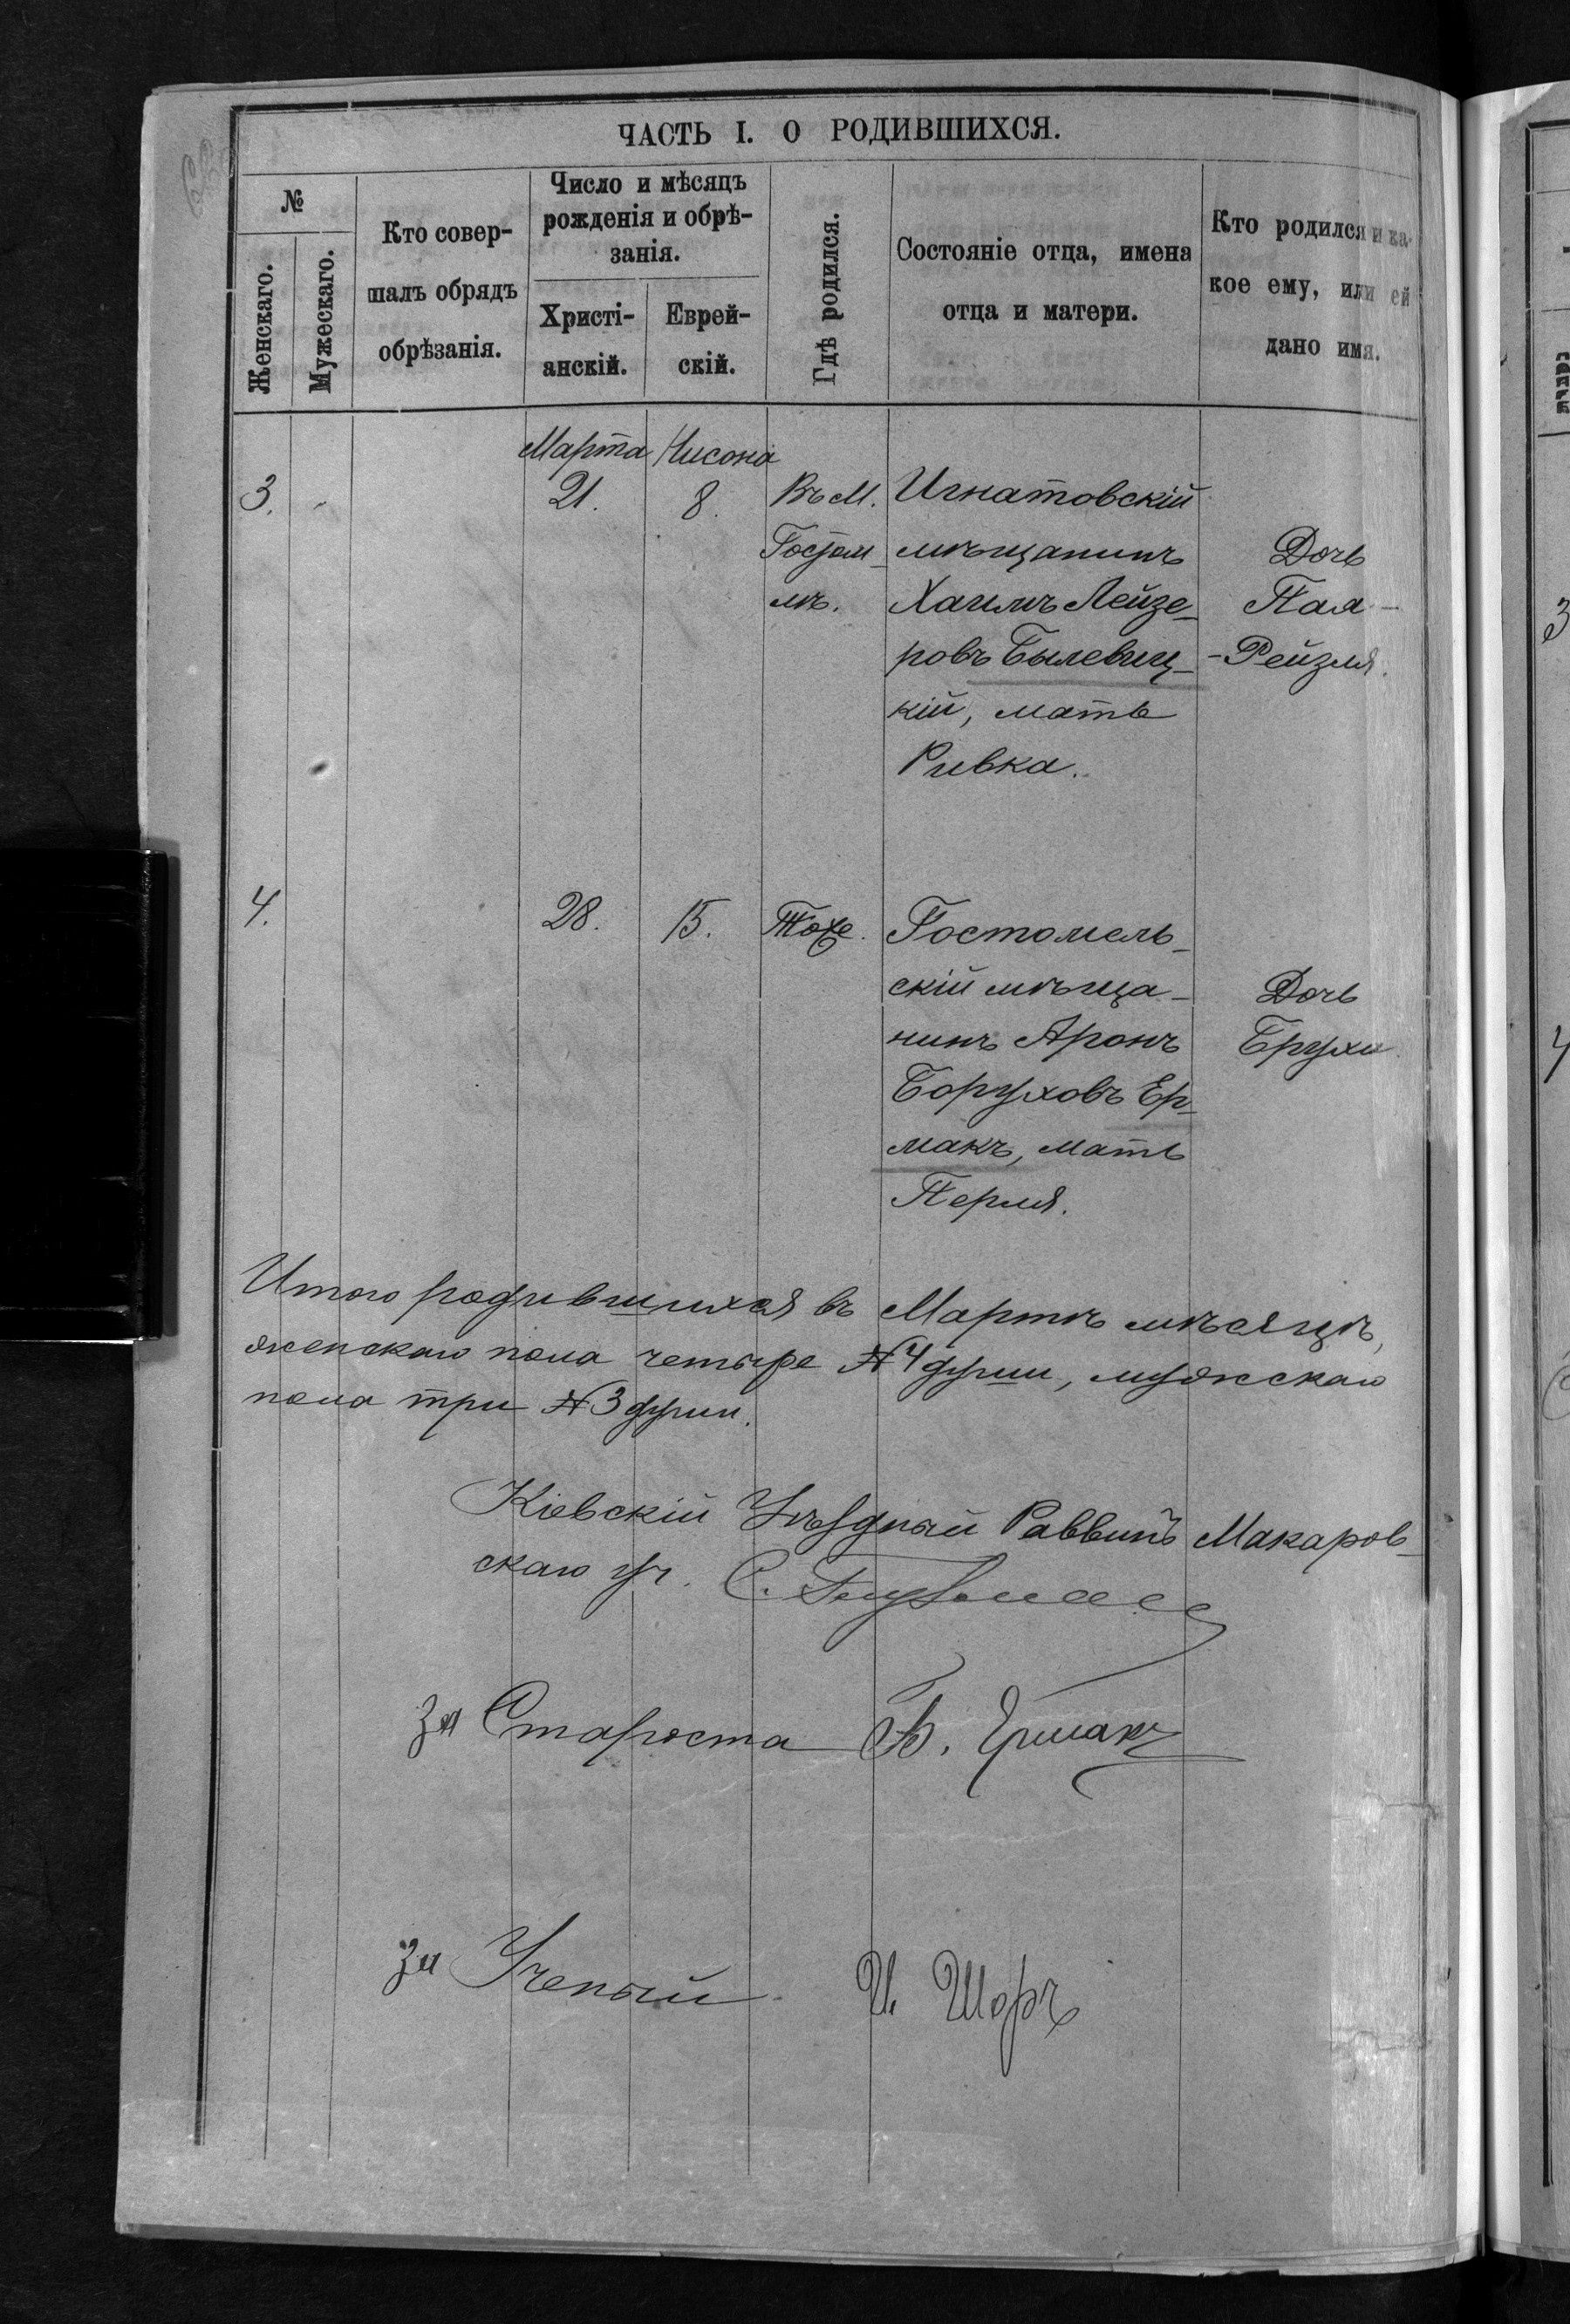 ЧАСТЬ I. О РОДИВШИХСЯ.
№
Женскаго.
Мужескаго.
Кто совер-
шалъ обрядъ
обрѣзанія.
Число и мѣсяцъ
рожденія и обрѣ-
занія.
Христі-
анскій.
Еврей-
скій.
Гдѣ родился.
Состояніе отца, имена
отца и матери.
Кто родился и ка-
кое ему, или ей
дано имя.
Марта Нисона
3. 21. 8. Въ М. Игнатовскій
Гостом- мѣщанинъ Дочь
лѣ. Хаимъ Лейзе- Пая-
ровъ Былевиц- -Рейзля.
кій, мать
Ривка.
4. 28. 15. Тоже. Гостомель-
скій мѣща- Дочь
нинъ Аронъ Бруха
Боруховъ Ер-
макъ, мать
Перля.
Итого родившихся въ Мартѣ мѣсяцѣ,
женскаго пола четыре №4 души, мужскаго
пола три №3 души.
Кіевскій Уѣздный Раввинъ Макаров-
скаго уч. С.
за Староста Б. Ермакъ
за Ученый И. Шоръ
3
4